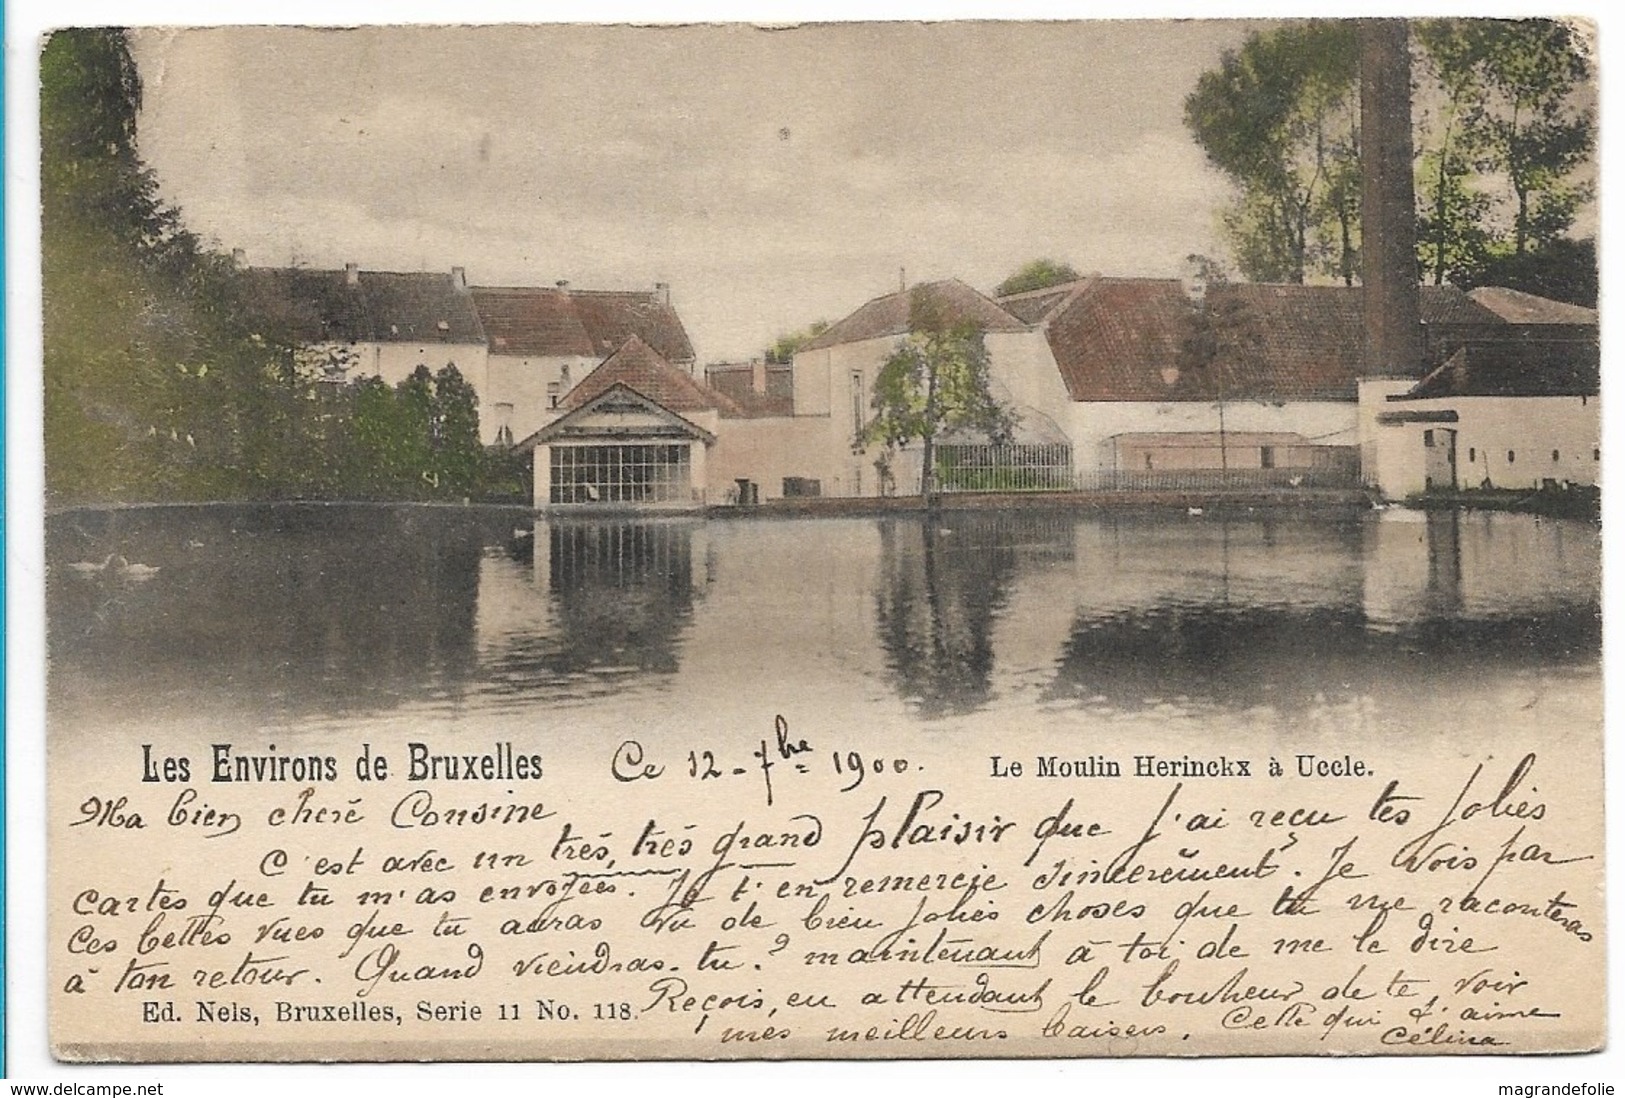 Les Environs de Bruxelles
Ce 12 - 7bre 1900.
Le Moulin Herinckx à Uccle.
Ma bien chère Cousine
C'est avec un très, très grand plaisir que j'ai reçu tes jolies
cartes que tu m'as envoyées. Je t'en remercie sincerement. Je vois par
ces belles vues que tu auras vu de bien jolies choses que tu me raconteras
à ton retour. Quand viendras-tu? maintenant à toi de me le dire
Reçois, en attendant le bonheur de te voir
mes meilleurs baisers. Celle qui t'aime
Célina
Ed. Nels, Bruxelles, Serie 11 No. 118.
www.delcampe.net
magrandefolie